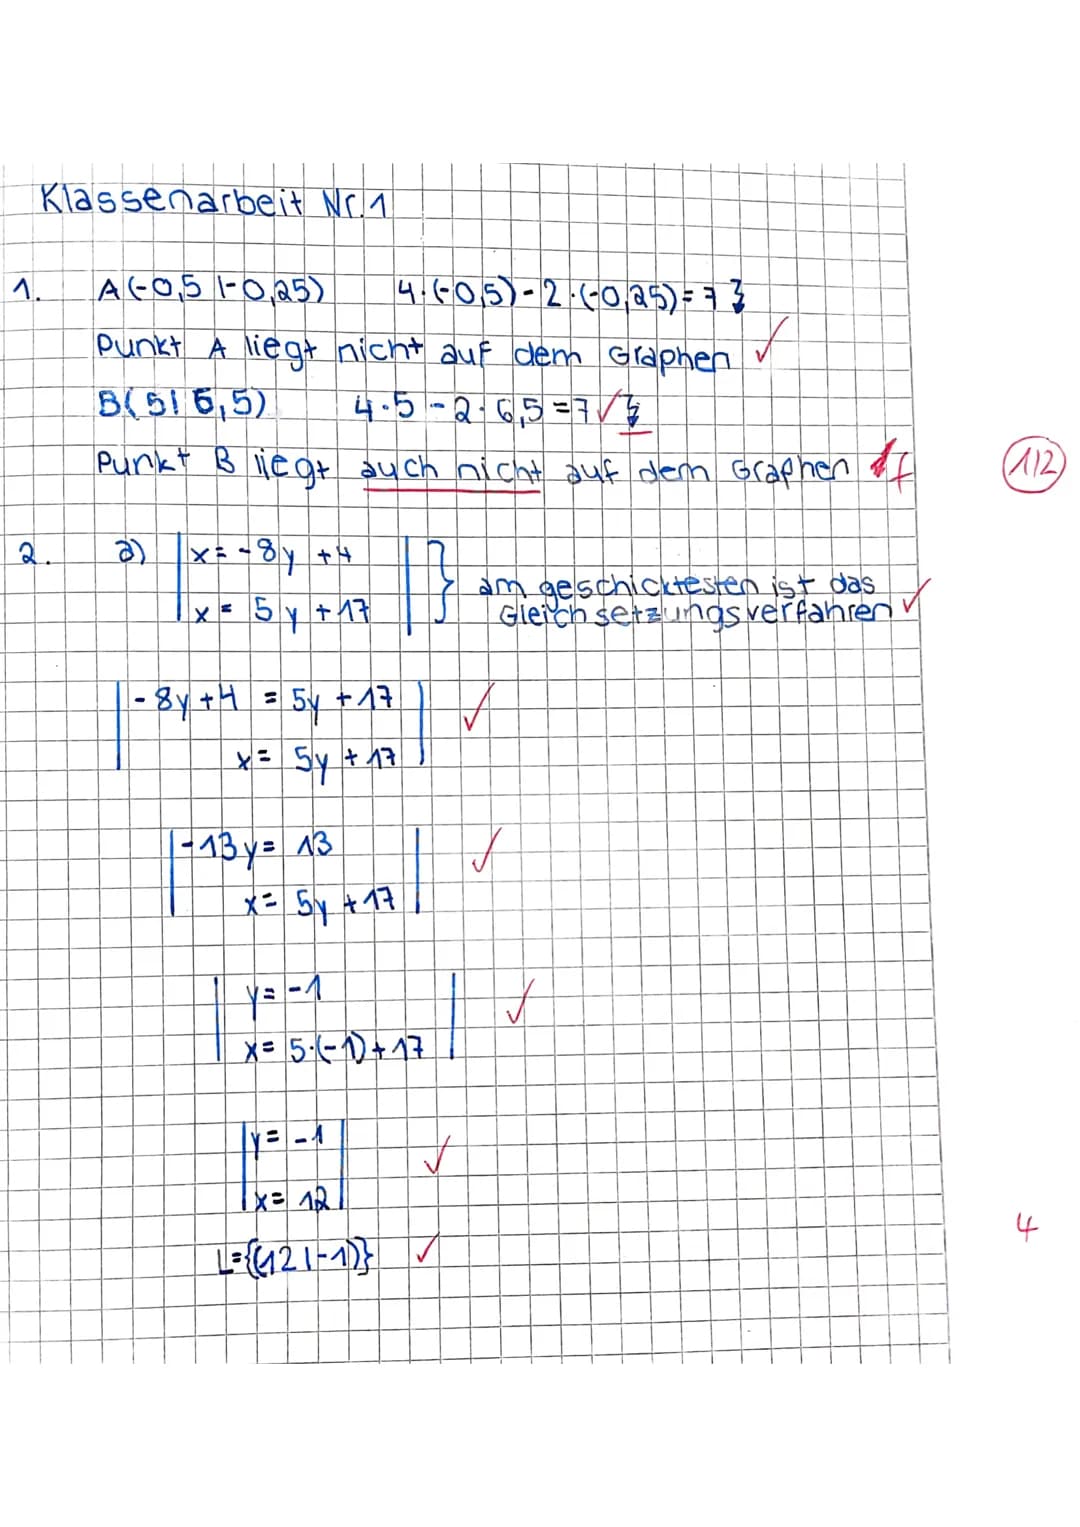 Klassenarbeit Nr. 1
1. A(-0,5 |-0,25) 4·(-0,5)-2·(-0,25)=7 ↯
Punkt A liegt nicht auf dem Graphen ✓
B(5|6,5) 4·5-2·6,5=7 ✓ ↯
Punkt B liegt auch nicht auf dem Graphen f
1/2
2. a) | x= -8y +4 |
| x = 5y +17 | } am geschicktesten ist das
Gleichsetzungsverfahren ✓
| -8y+4 = 5y +17 | ✓
| x= 5y +17 |
| -13y= 13 | ✓
| x= 5y +17 |
| y= -1 | ✓
| x= 5·(-1)+17 |
| y= -1 | ✓
| x= 12 |
4
L={(12|-1)} ✓